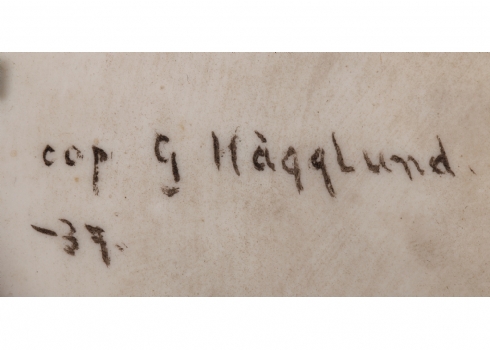 cop G Hägglund.
-37.